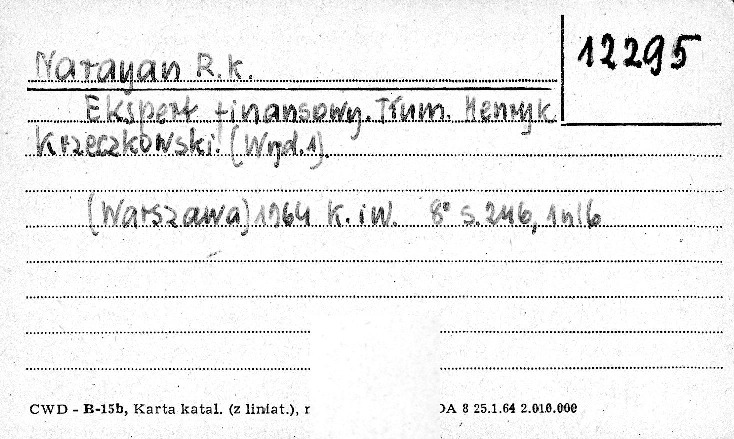 12295
Narayan R.K.
Ekspert finansowy. Tłum. Henryk
Krzeczkowski. (Wyd.1).
(Warszawa) 1964 K. i W. 8° s. 246, 1 nlb
CWD - B-15b, Karta katal. (z liniat.), r
DA 8 25.1.64 2.010.000